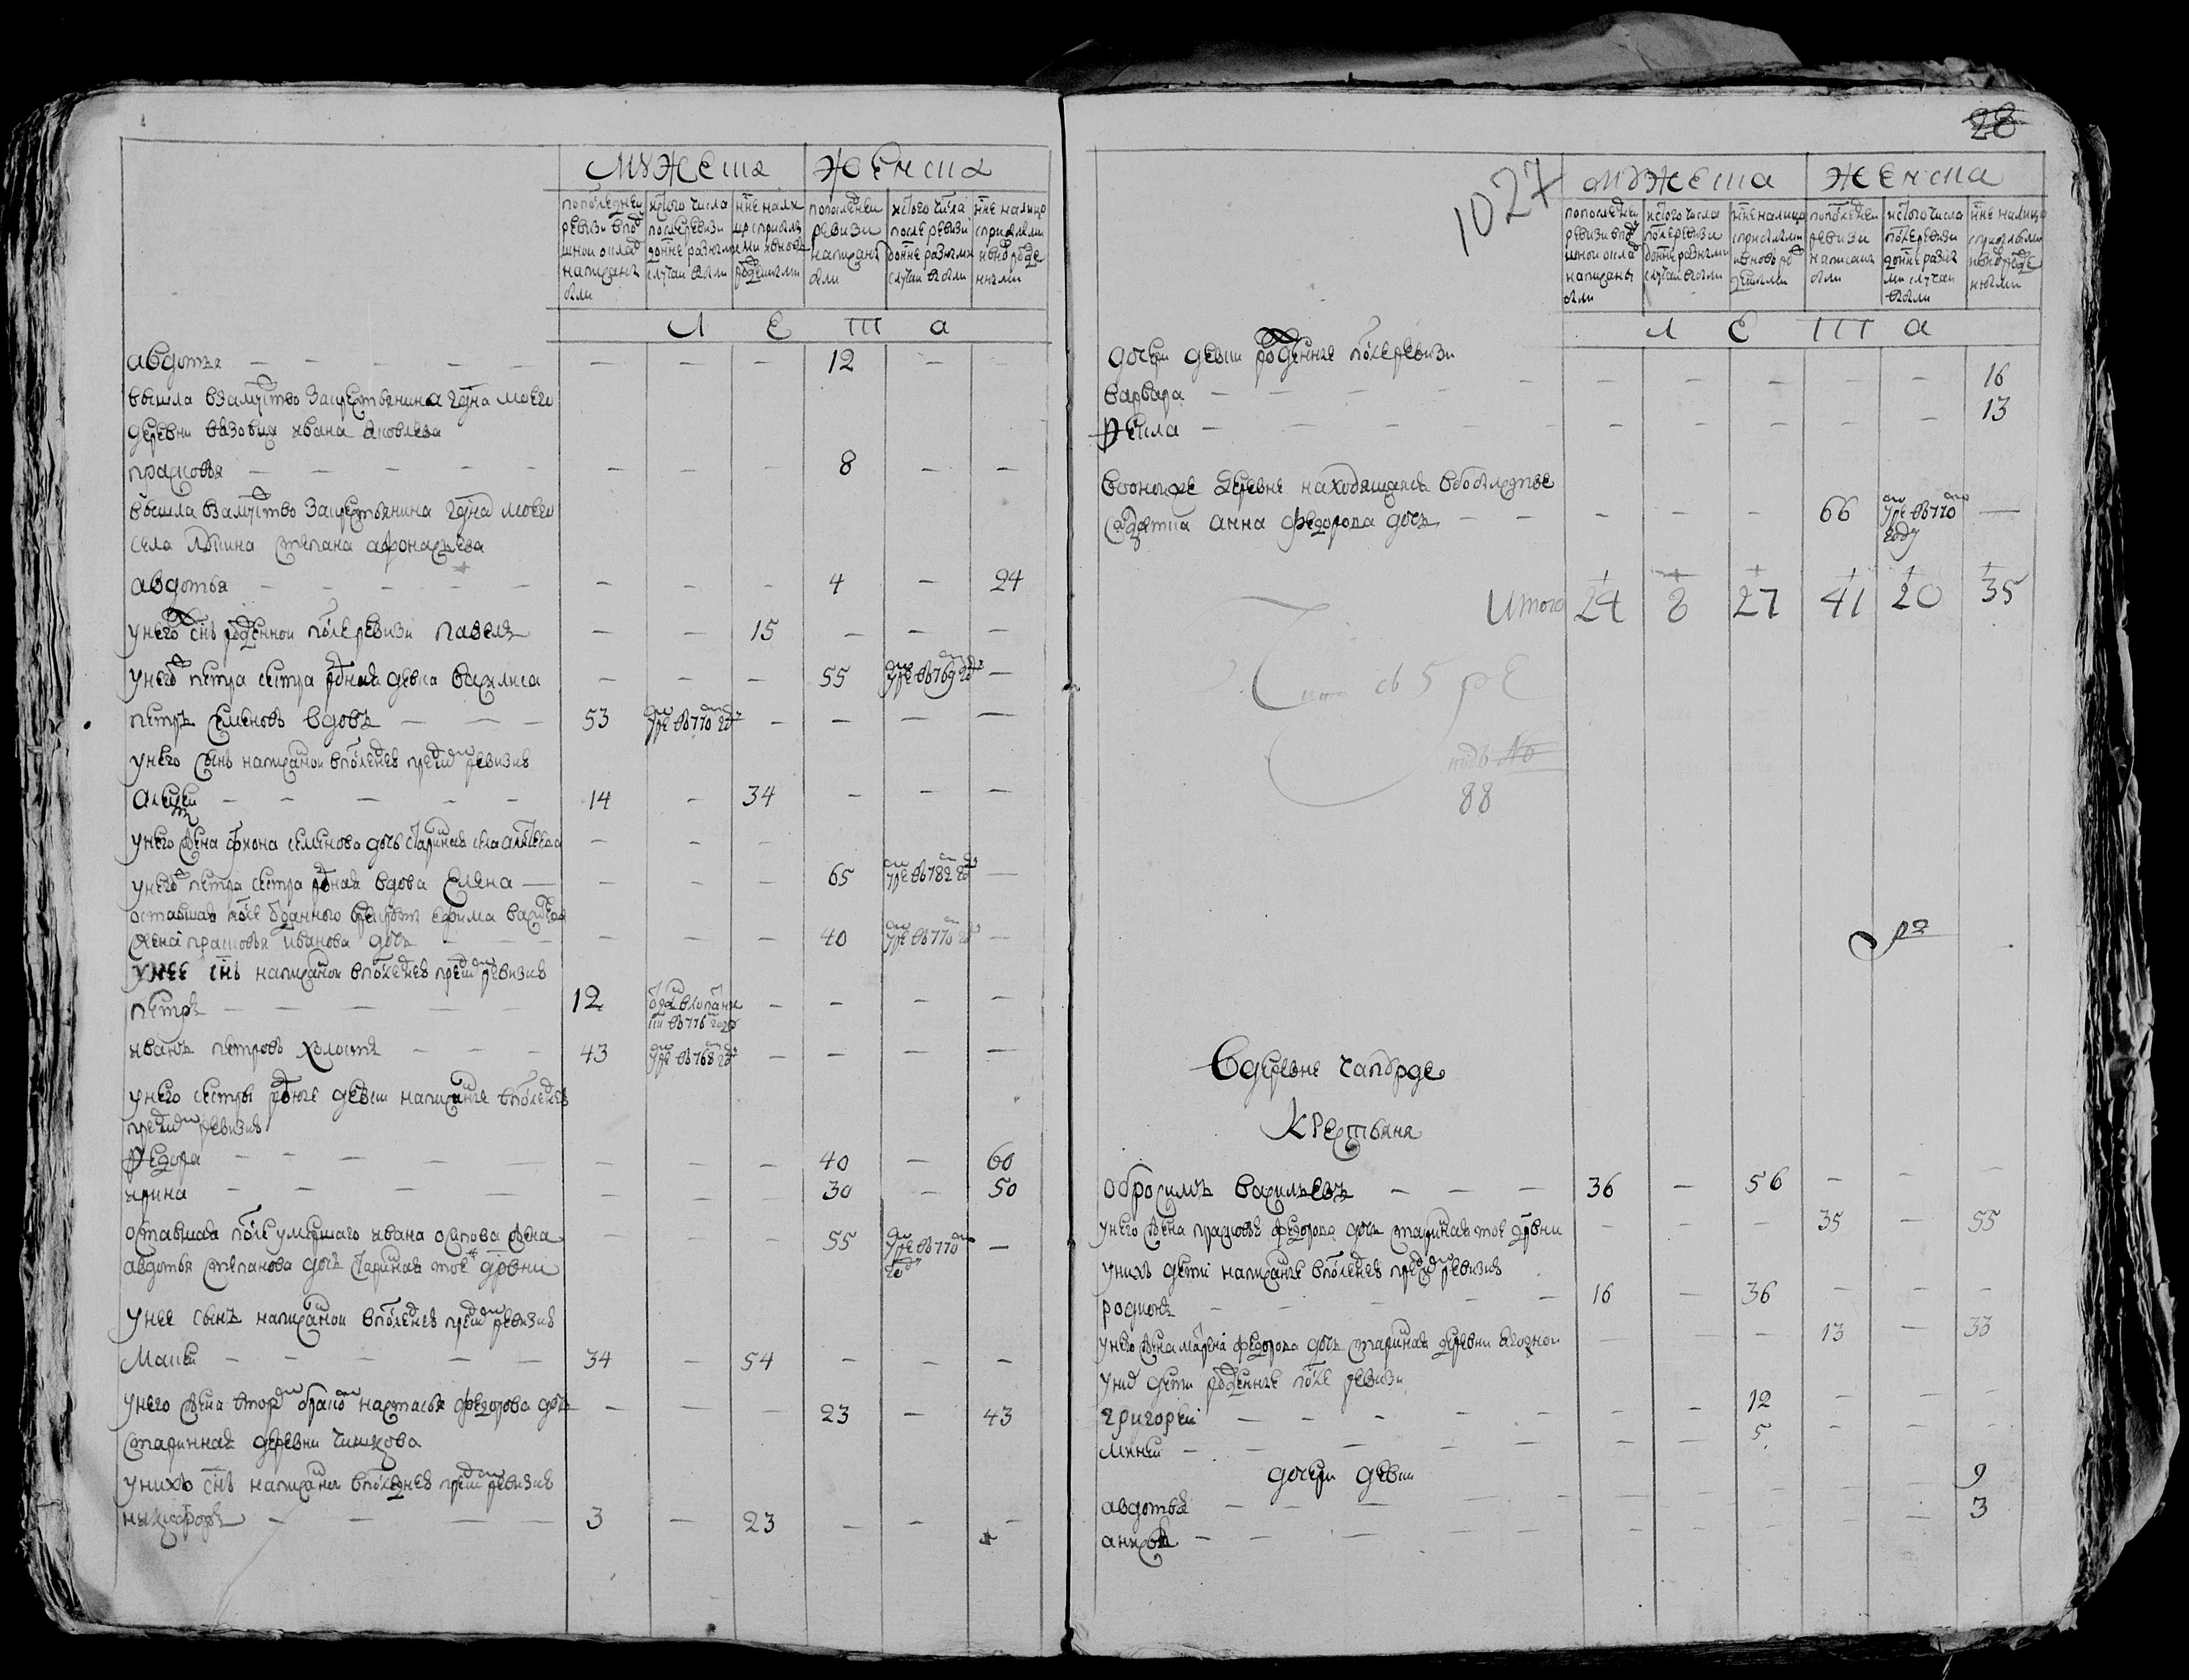 мужеска женска
попоследней ревизи вподушной оклад написаны были
ис того числа после ревизи донне разными случаи выбыли
ныне налицо сприбылыми и вновь рожденными
попоследней ревизи написаны были
ис того числа после ревизи донне разными случаи выбыли
ныне налицо сприбылыми и вновь рожденными
Л Е Т А
авдотья — — — 12 — —
вышла взамуство за крестьянина гдна моего
деревни ивана яковлева
прасковья — — — 8 — —
вышла взамуство за крестьянина гдна моего
села степана афонасьева
авдотья — — — 4 — 24
у него снъ рожденной после ревизи павелъ — — 15 — — —
у него петра сестра родная девка василиса — — — 55 умре въ 769 году —
петръ семеновъ вдовъ 53 умре въ 770 году — — — —
у него сынъ написанной в последней пред сею ревизие
алексей 14 — 34 — — —
у него жена фиона семенова дочь старинная села — — —
у него петра сестра родная вдова елена — — — 65 умре въ 782 году —
оставшая после отданного в рекруты ефима васильева
жена прасковья иванова дочь — — — 40 умре въ 770 году —
у нее снъ написанной в последней пред сею ревизие
петръ 12 отдан в въ 776 году — — — —
иванъ петровъ холостъ 43 умре въ 768 году — — — —
у него сестры родные девки написанные в последней
пред сею ревизие
федора — — — 40 — 60
ирина — — — 30 — 50
оставшая после умершаго ивана осипова жена — — — 55 умре въ 770 году —
авдотья степанова дочь старинная тое ж дрвни
у нее сынъ написанной в последней пред сею ревизие
мокей 34 — 54 — — —
у него жена втораго браку настасья федорова дочь — — — 23 — 43
старинная деревни
у нихъ снъ написанной в последней пред сею ревизие
никифоръ 3 — 23 — — —
28
1027
мужеска женска
попоследней ревизи вподушной оклад написаны были
ис того числа после ревизи донне разными случаи выбыли
ныне налицо сприбылыми и вновь рожденными
попоследней ревизи написаны были
ис того числа после ревизи донне разными случаи выбыли
ныне налицо сприбылыми и вновь рожденными
Л Е Т А
дочери девки рожденные после ревизи
варвара — — — — — 16
фекла — — — — — 13
в оной же деревне находящаяся в богаделстве
анна федорова дочь — — — 66 умре въ 770 году —
Итого 24 8 27 41 20 35
88
В деревне
Крестьяня
обросимъ васильевъ 36 — 56 — — —
у него жена прасковья федорова дочь старинная тое ж дрвни — — — 35 — 55
у нихъ дети написанные в последней пред сею ревизие
родионъ 16 — 36 — — —
у него жена федорова дочь старинная деревни — — — 13 — 33
у них дети рожденные после ревизи
григорей — — 12 — — —
миней — — 5 — — —
дочери девки
авдотья — — — — — 9
анисья — — — — — 3